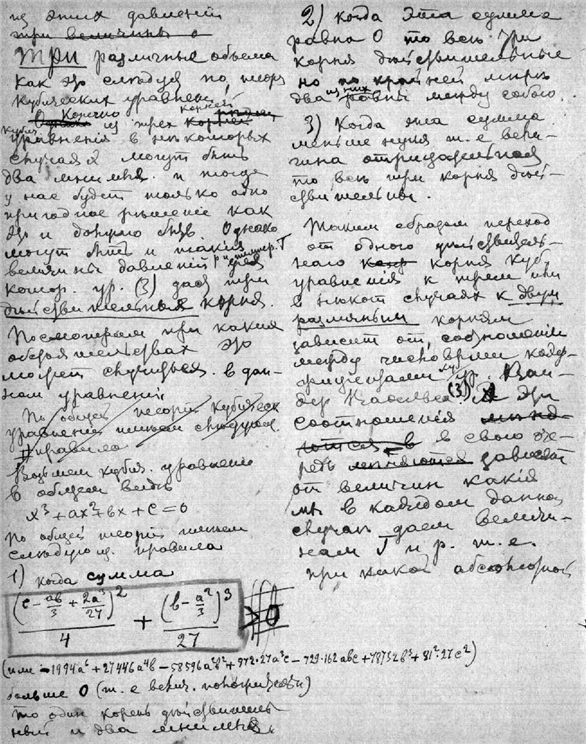 из этих давлений
три величины
три различные объема
как это следует по теоріи
кубических уравненій,
Конечно из трех корней
кубич. уравненія в некоторых
случаях могут быть
два мнимых и тогда
у нас будет только одно
пригодное решение как
это и должно быть. Однако
могут быть и такия
величины давленій p и темпер. T для
котор. ур. (3) даст три
действительных корня.
Посмотрим при каких
обстоятельствах это
может случиться. в дан-
ном уравнении
По общей теоріи кубическ
уравнений имеем следующ.
правила
Возьмем кубич. уравнение
в общем виде
x³+ax²+bx+c=0
По общей теоріи имеем
следующ. правила
1) когда сумма
(c - ab/3 + 2a³/27)²/4 + (b - a²/3)³/27 > 0
больше 0 (т.е. велич. положительн)
то один корень действитель
ный и два мнимых
2) когда эта сумма
равна 0 то все три
корня действительные
но по крайней мере
два из них равны между собою.
3) Когда эта сумма
меньше нуля т.е. вели-
чина отрицательная
то все три корня дей-
ствительны.
Таким образом переход
от одного действитель-
наго корня куб.
уравненія к трем или
в некот случаях к двум
различным корням
зависит от соотношений
между числовыми коэф-
фициентами кубич. ур. Ван-
дер Ваальса (3). Эти
соотношения
в свою оче-
редь зависят
от величин какия
мы в каждом данном
случае даем величи-
нам T и p. т.е.
при какой абсолютной